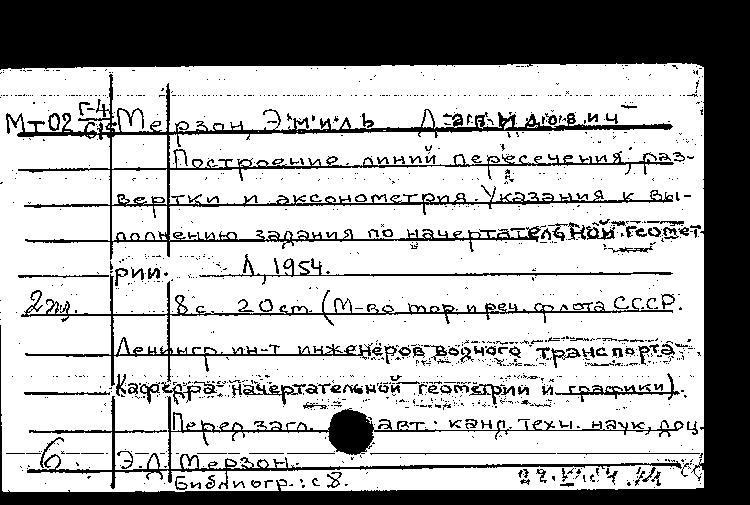 Мт02 Г-4 Мерзон, Эмиль Давидович
Построение линий пересечения, раз-
вертки и аксонометрия. Указания к вы-
полнению задания по начертательной геомет-
рии. Л., 1954.
2 экз. 8 с. 20 см (М-во мор. и реч. флота СССР.
Ленингр. ин-т инженеров водного транспорта
Кафедра начертательной геометрии и графики).
Перед загл. авт.: канд. техн. наук, доц.
6 Э.Д. Мерзон.
Библиогр.: с 8.